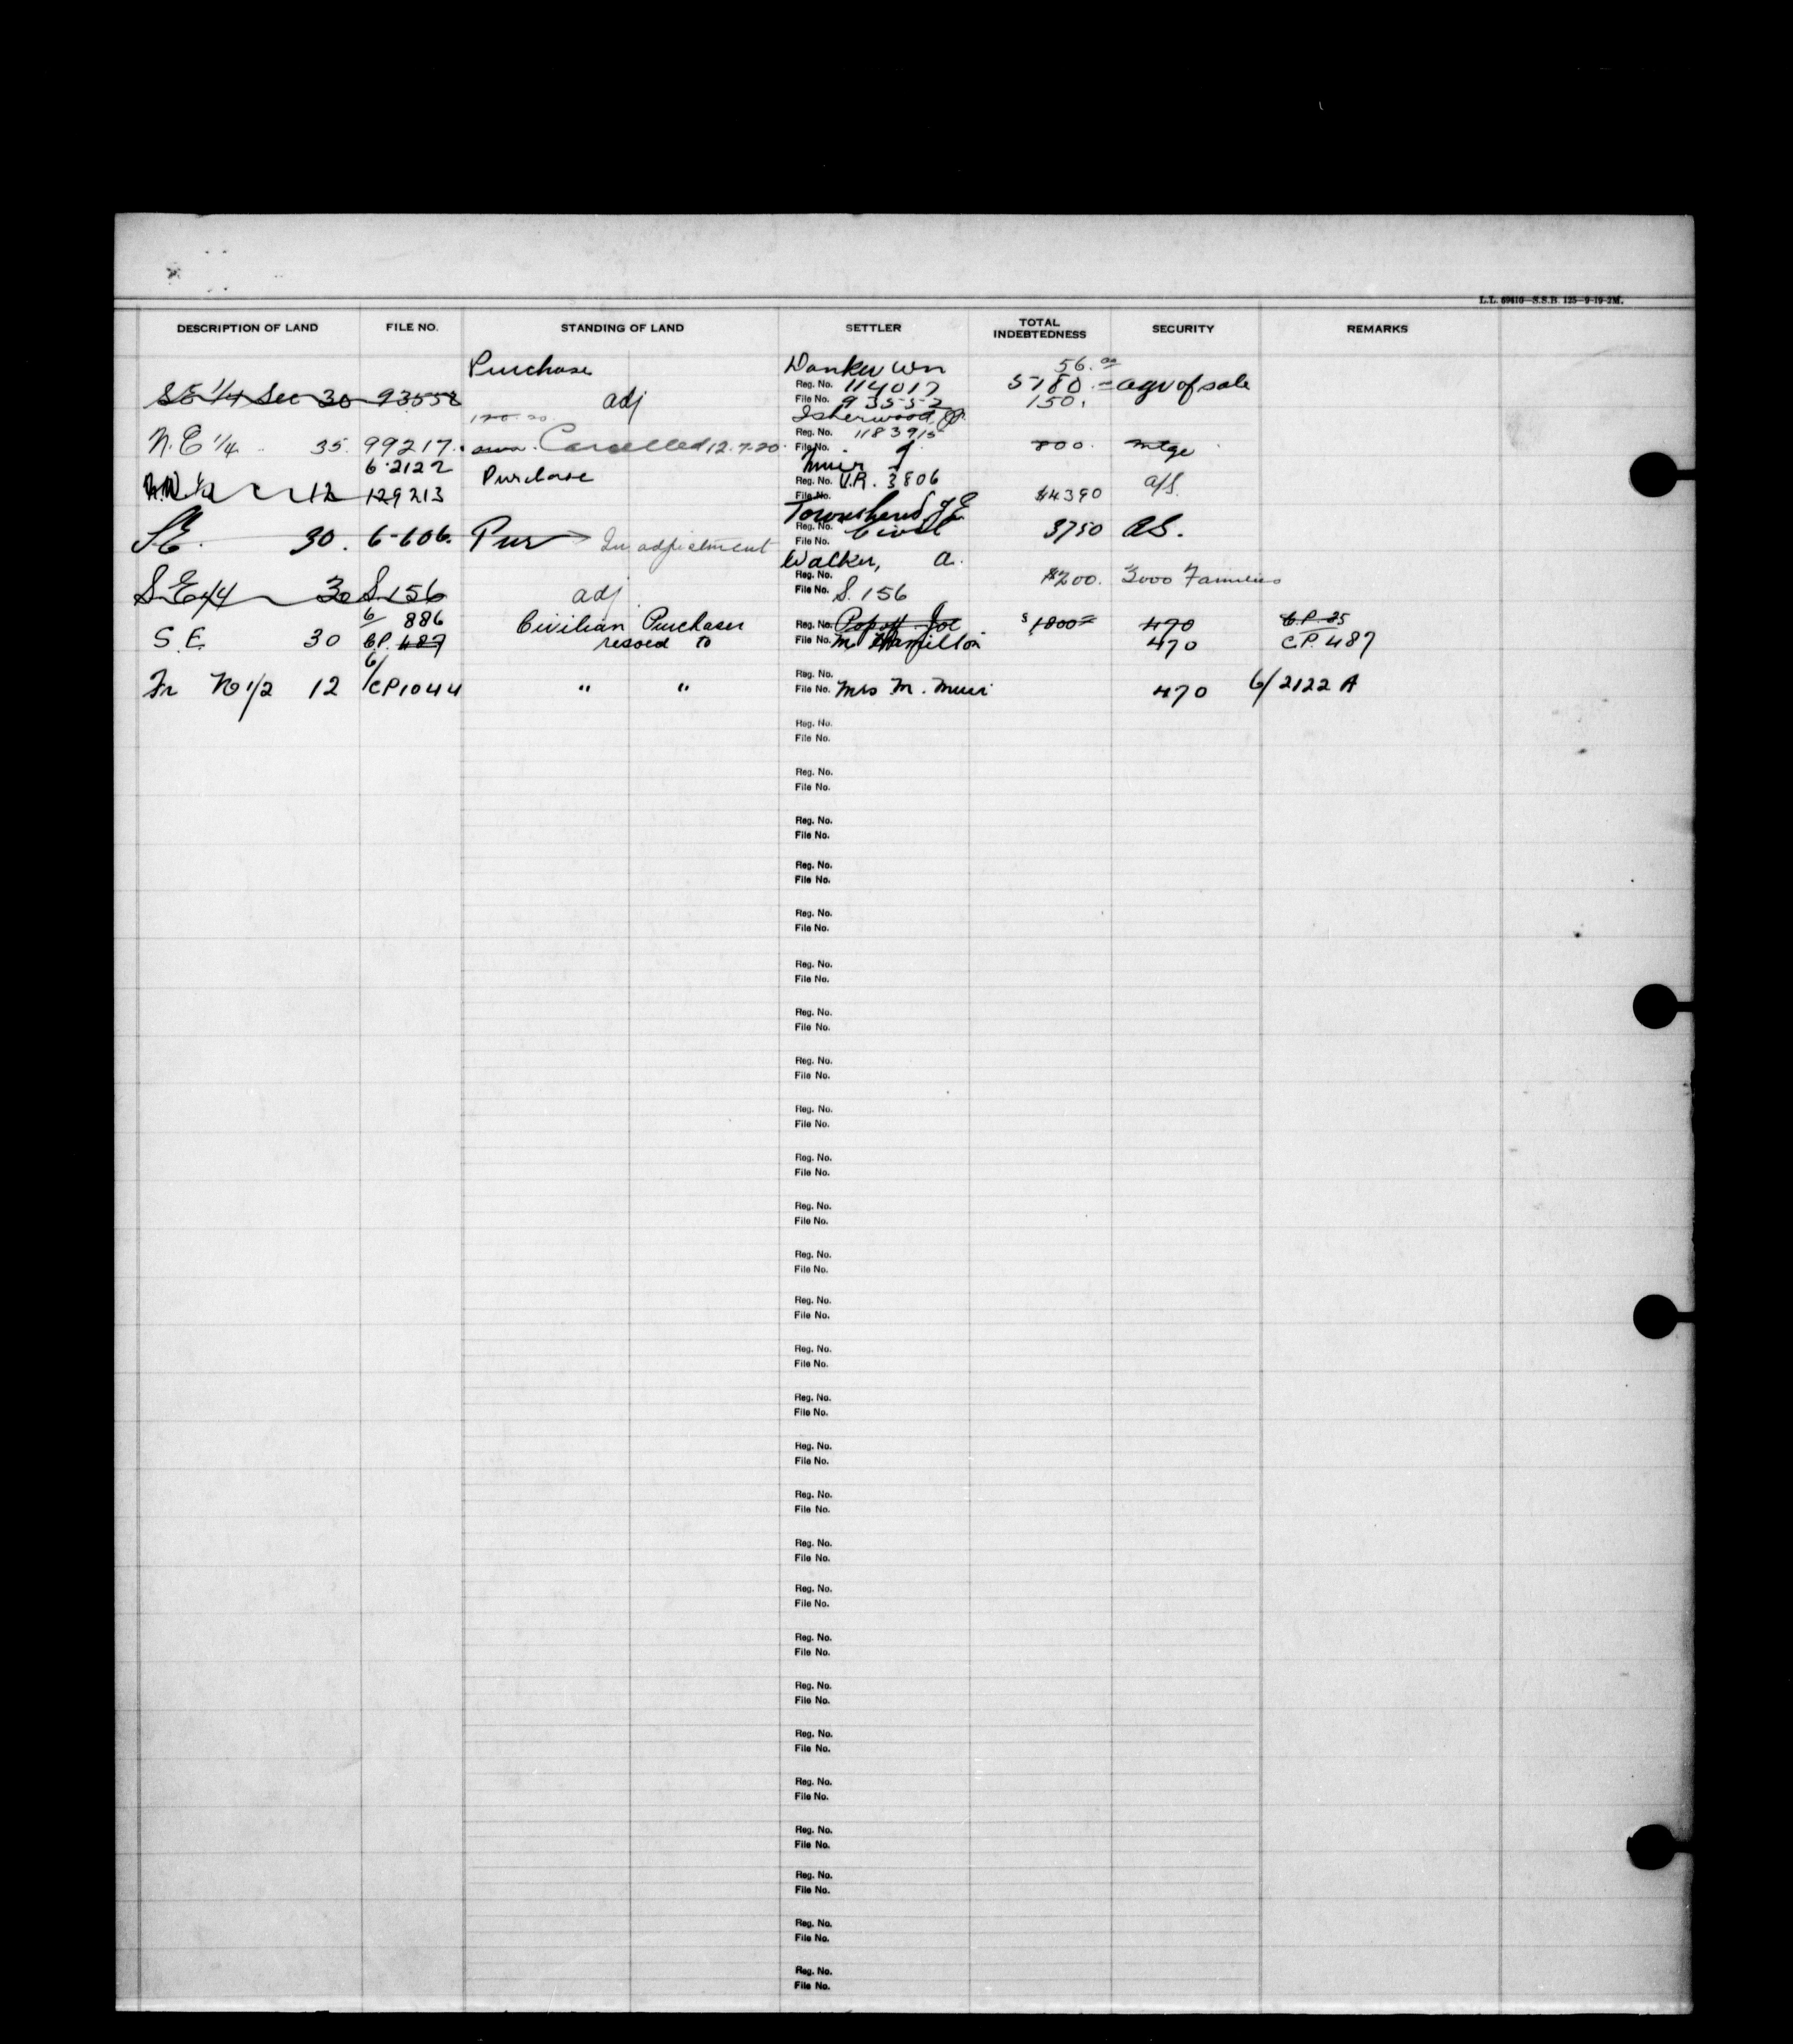 L.L. 69610—S.S.B. 125—9-19-2M.
DESCRIPTION OF LAND FILE NO. STANDING OF LAND SETTLER TOTAL INDEBTEDNESS SECURITY REMARKS
Purchase Danker Wm 56.00
Reg. No. 114017 5180.= agr of sale
SE 1/4 Sec 30 93558 adj File No. 93552 150.
Isherwood
Reg. No. 118391
N.E 1/4 35. 99217. Cancelled 12.7.20. File No. 800. mtge
6-2122 Purchase Muir J
Reg. No. V.R. 3806 a/s.
1/2 12 129213 File No. $4390
Townshend J E
Reg. No. Civil 3750 A.S.
S.E. 30. 6-606. Pur In adjustment File No.
Walker, A.
Reg. No. $200. 3000 Families
S.E 1/4 30 S.156 adj. File No. S. 156
6/ 886 Civilian Purchaser Reg. No. Popoff Joe $1800= 470 C.P. 35
S.E. 30 C.P. 487 resold to File No. M Hamilton 470 C.P. 487
6/ Reg. No.
Fr N 1/2 12 CP1044 " " File No. Mrs M. Muir 470 6/2122 A
Reg. No.
File No.
Reg. No.
File No.
Reg. No.
File No.
Reg. No.
File No.
Reg. No.
File No.
Reg. No.
File No.
Reg. No.
File No.
Reg. No.
File No.
Reg. No.
File No.
Reg. No.
File No.
Reg. No.
File No.
Reg. No.
File No.
Reg. No.
File No.
Reg. No.
File No.
Reg. No.
File No.
Reg. No.
File No.
Reg. No.
File No.
Reg. No.
File No.
Reg. No.
File No.
Reg. No.
File No.
Reg. No.
File No.
Reg. No.
File No.
Reg. No.
File No.
Reg. No.
File No.
Reg. No.
File No.
Reg. No.
File No.
Reg. No.
File No.